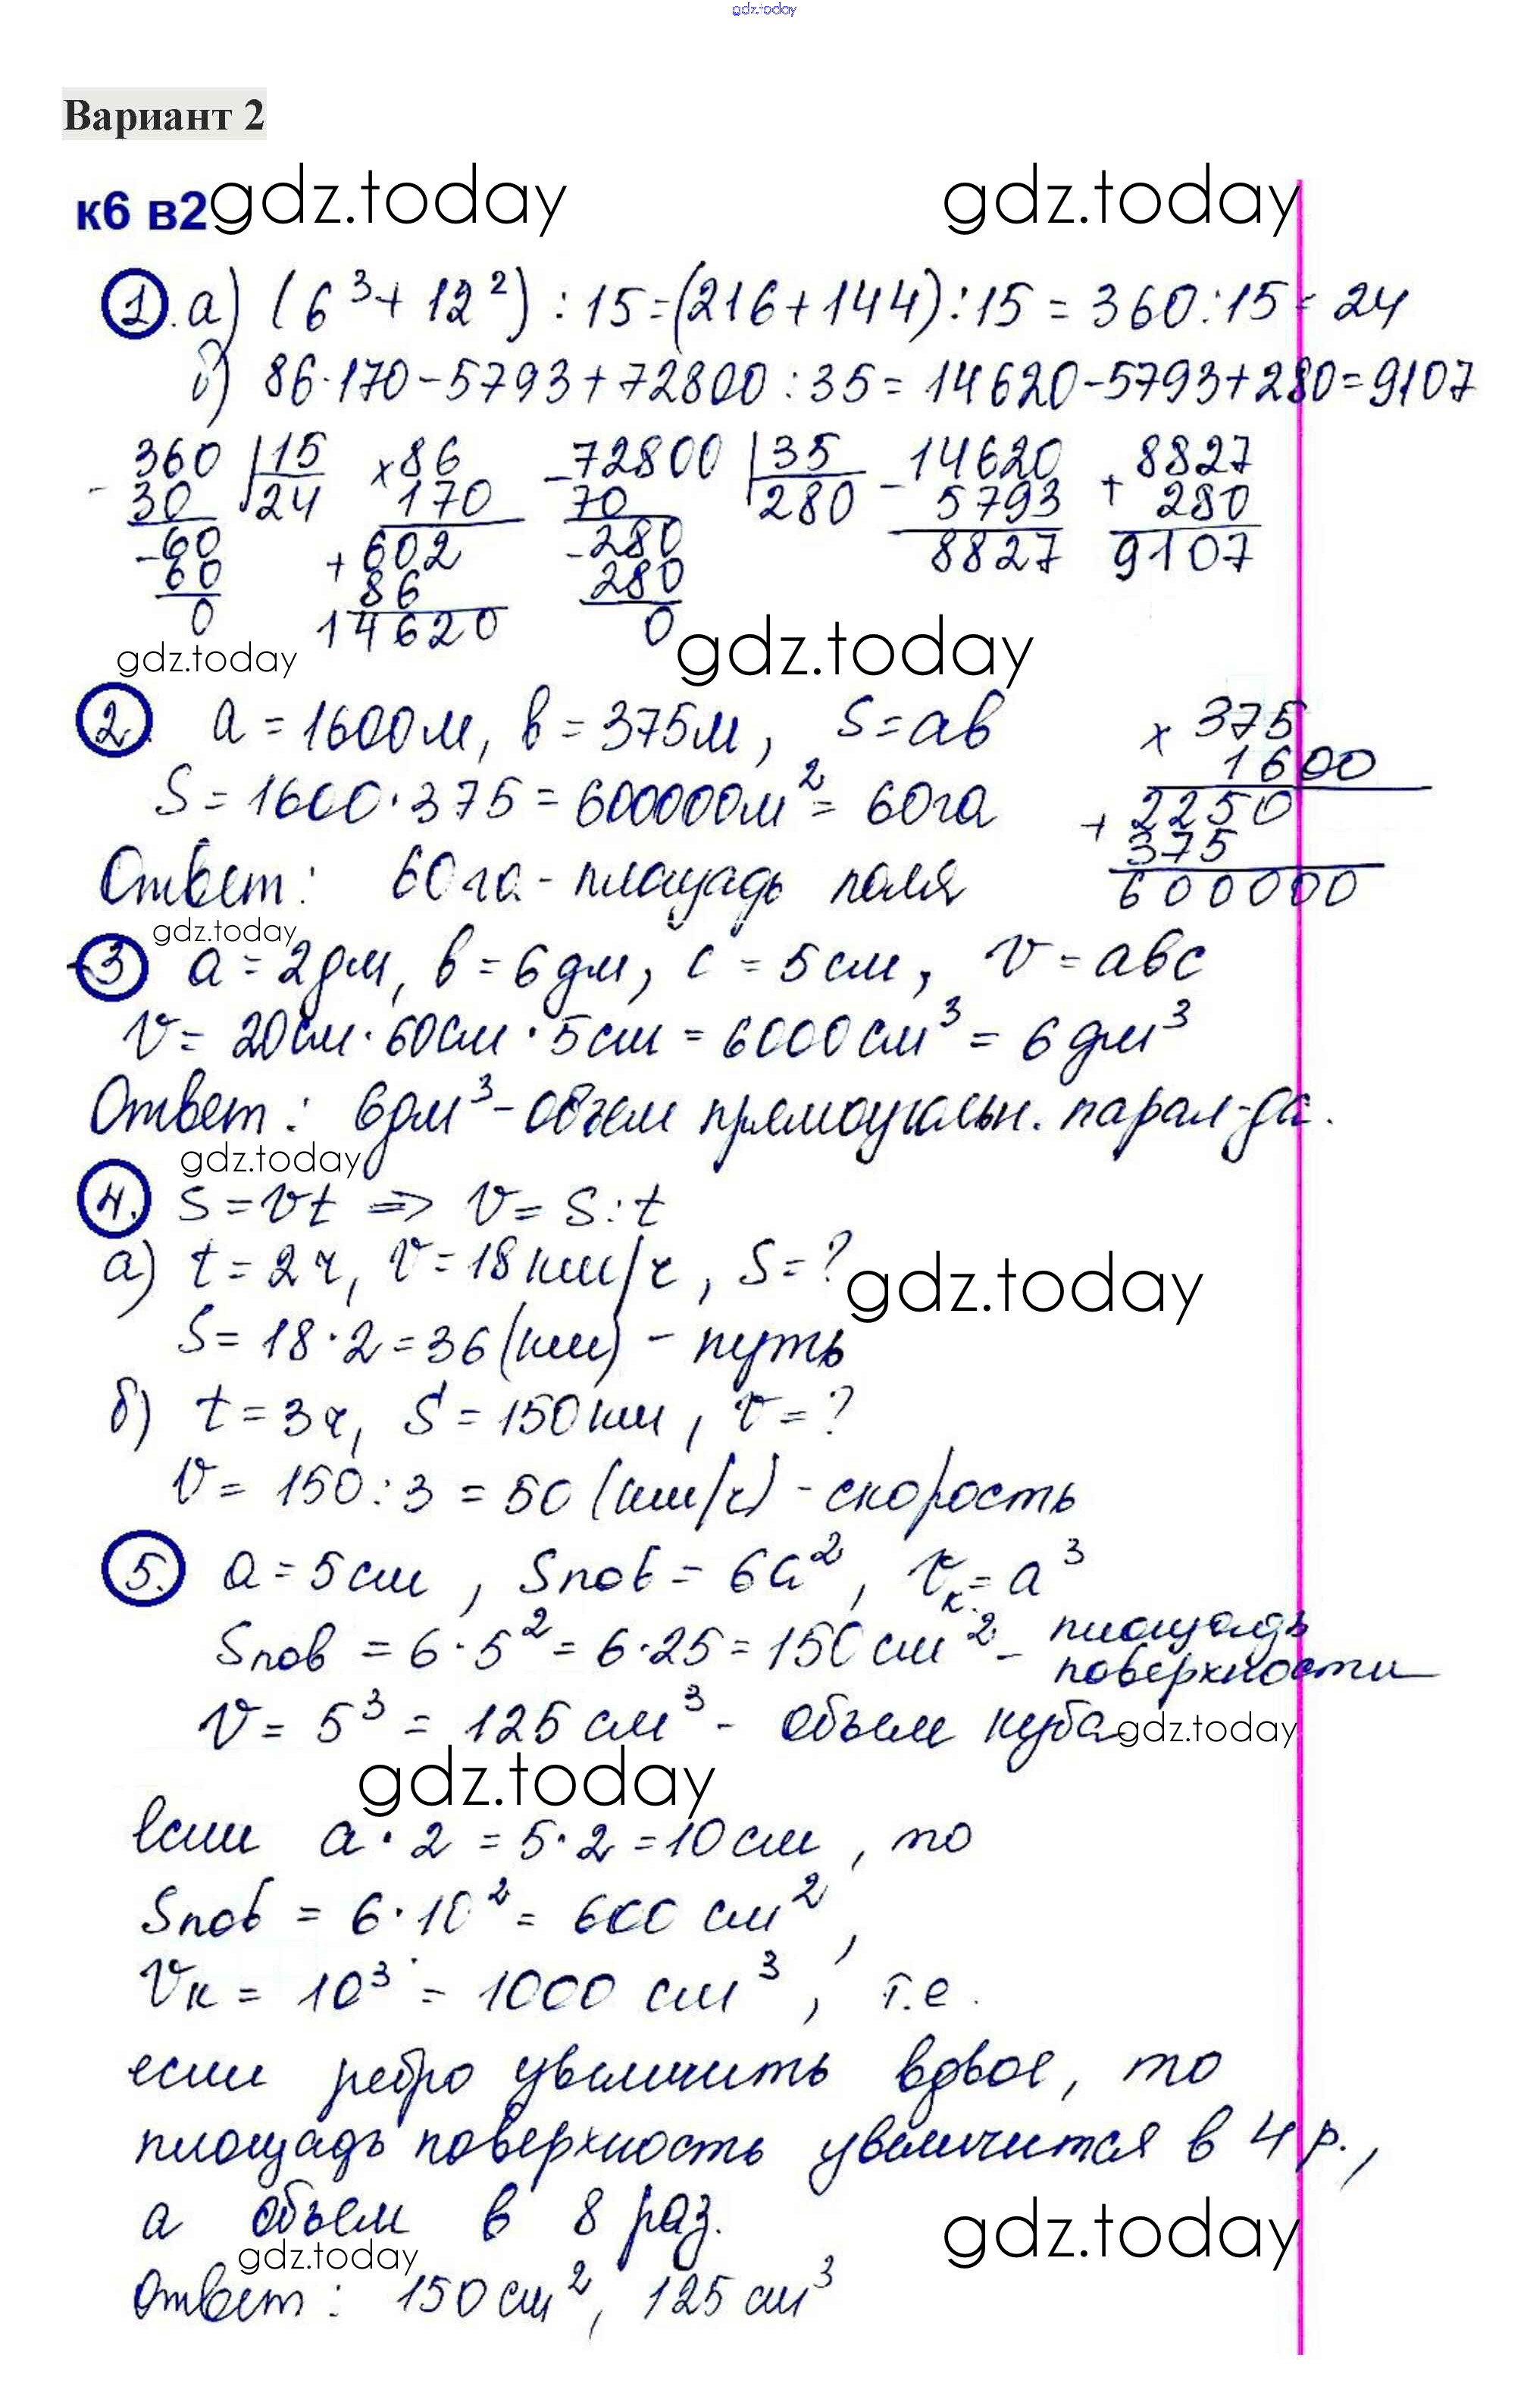 gdz.today
Вариант 2
к6 в2 gdz.today gdz.today
1. а) (6³ + 12²) : 15 = (216 + 144) : 15 = 360 : 15 = 24
б) 86 · 170 - 5793 + 72800 : 35 = 14620 - 5793 + 280 = 9107
- 360 | 15 × 86 - 72800 | 35 - 14620 + 8827
30 24 170 70 280 5793 280
- 60 + 602 - 280 8827 9107
60 86 280
0 14620 0
gdz.today gdz.today
2. a = 1600 м, b = 375 м, S = ab × 375
1600
S = 1600 · 375 = 600000 м² = 60 га + 2250
375
Ответ: 60 га - площадь поля 600000
gdz.today
3 a = 2 дм, b = 6 дм, c = 5 см, V = abc
V = 20 см · 60 см · 5 см = 6000 см³ = 6 дм³
Ответ: 6 дм³ - объем прямоугольн. парал-да.
gdz.today
4. S = Vt => V = S : t
а) t = 2 ч, V = 18 км/ч, S = ? gdz.today
S = 18 · 2 = 36 (км) - путь
б) t = 3 ч, S = 150 км, V = ?
V = 150 : 3 = 50 (км/ч) - скорость
5. a = 5 см, Sпов = 6a², Vк = a³
Sпов = 6 · 5² = 6 · 25 = 150 см² - площадь
поверхности
V = 5³ = 125 см³ - объем куба gdz.today
gdz.today
если a · 2 = 5 · 2 = 10 см, то
Sпов = 6 · 10² = 600 см²,
Vк = 10³ = 1000 см³, т.е.
если ребро увеличить вдвое, то
площадь поверхность увеличится в 4 р.,
а объем в 8 раз. gdz.today
gdz.today
Ответ: 150 см², 125 см³